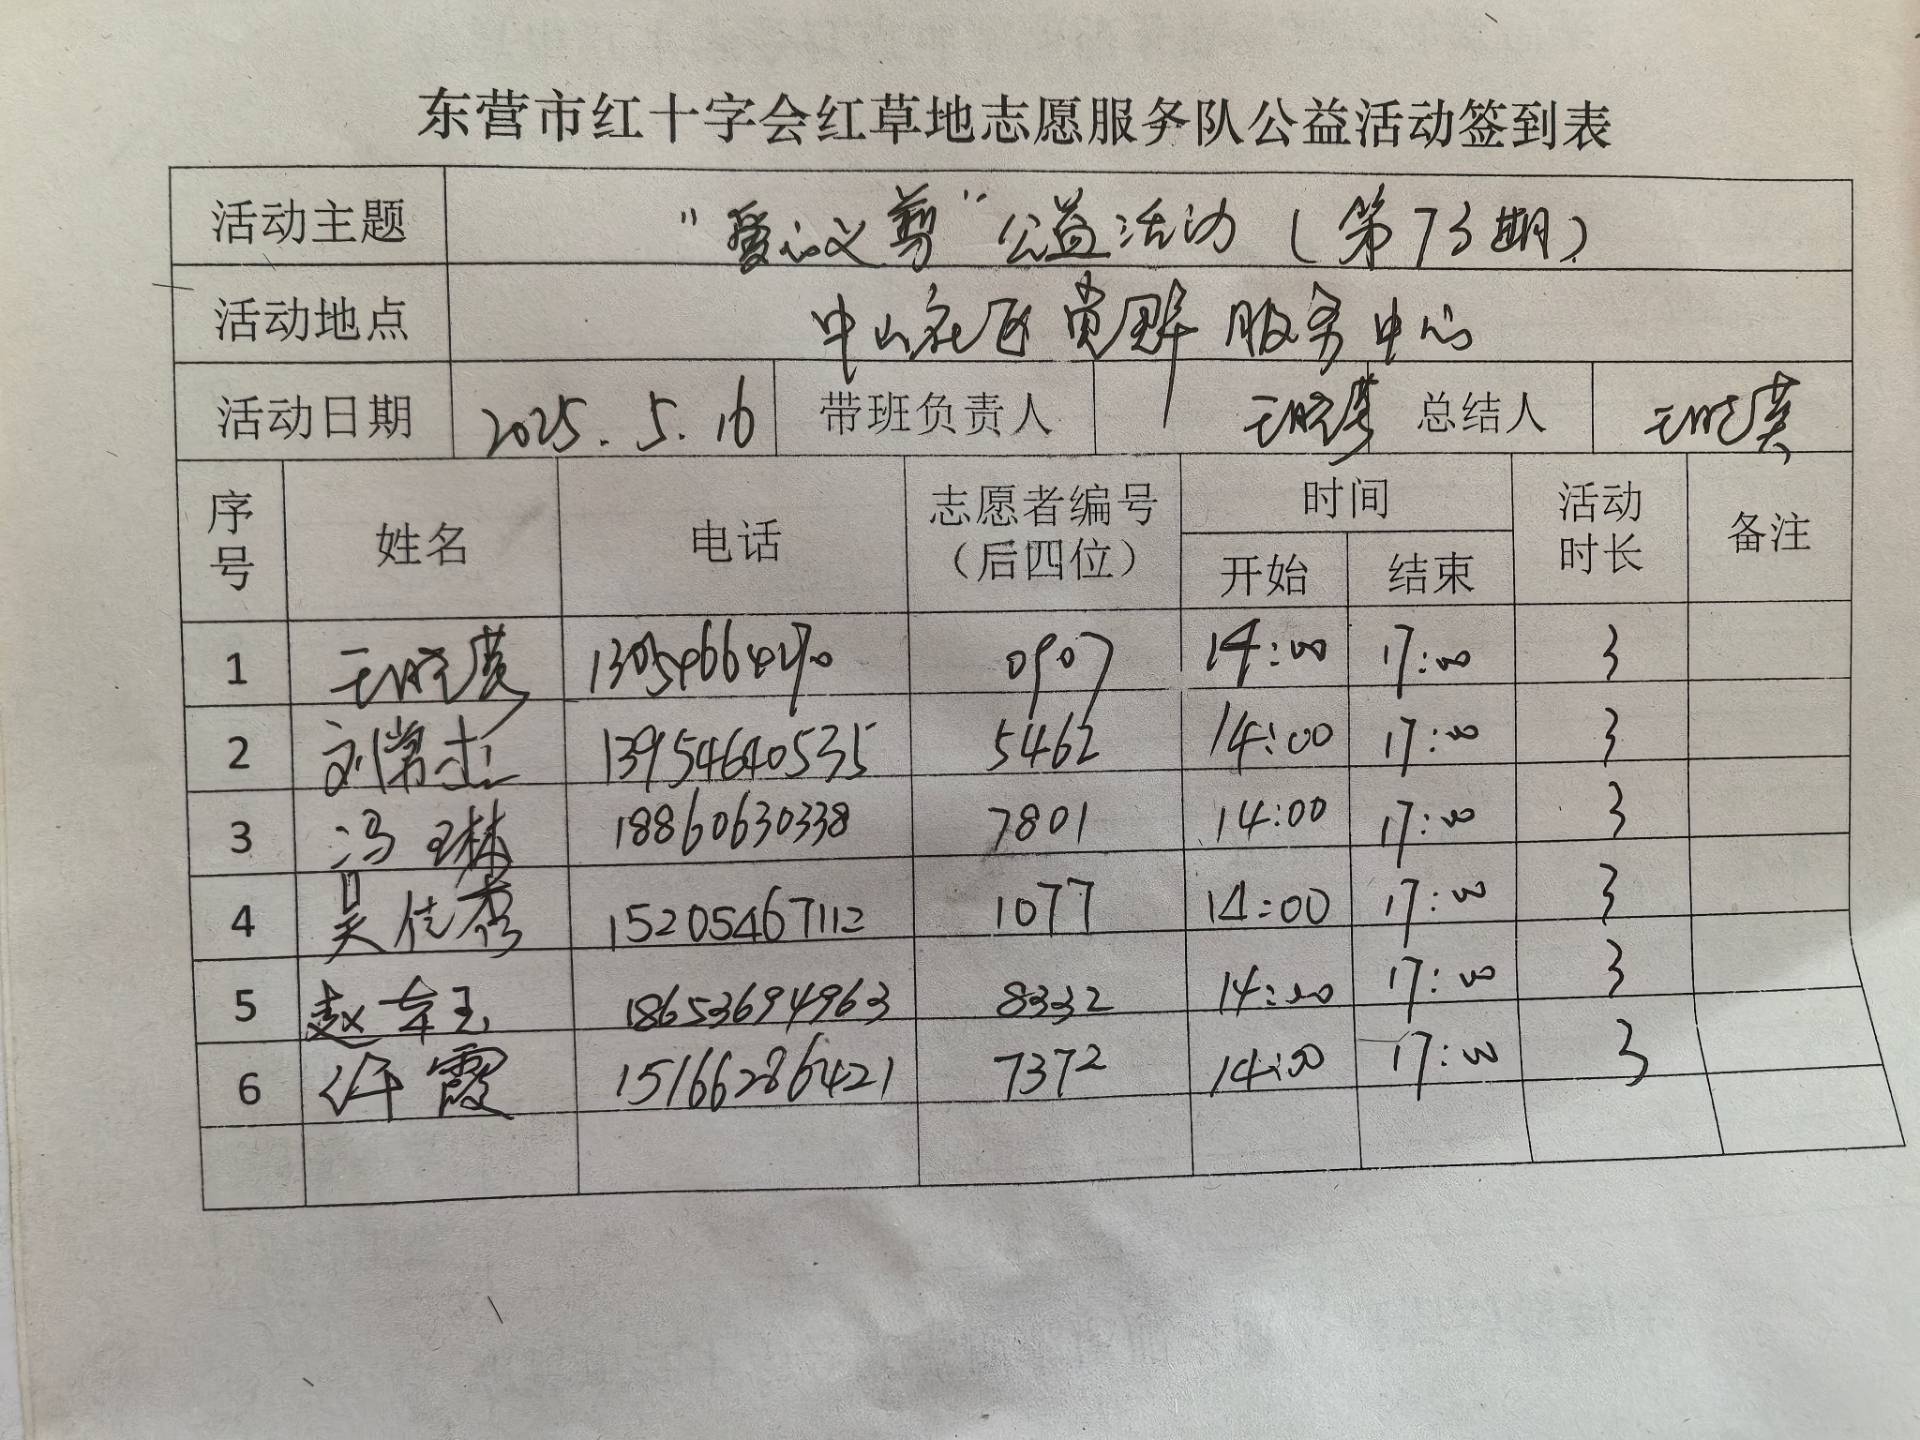 东营市红十字会红草地志愿服务队公益活动签到表
活动主题 "爱心义剪"公益活动(第73期)
活动地点 中山社区党群服务中心
活动日期 2025.5.16 带班负责人 王晓英 总结人 王晓英
序号 姓名 电话 志愿者编号(后四位) 时间 开始 结束 活动时长 备注
1 王晓英 0907 14:00 17:00 3
2 刘常 13954640535 5462 14:00 17:00 3
3 冯琳 18860630338 7801 14:00 17:00 3
4 吴佳秀 15205467112 1077 14:00 17:00 3
5 赵 玉 18653694963 8332 14:00 17:00 3
6 许霞 15166286421 7372 14:00 17:00 3